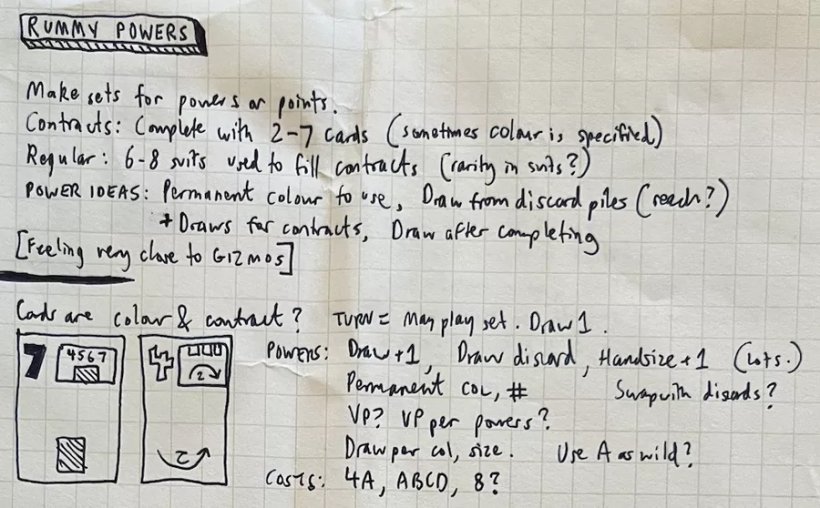 RUMMY POWERS
Make sets for powers or points.
Contracts: Complete with 2-7 cards (sometimes colour is specified)
Regular: 6-8 suits used to fill contracts (rarity in suits?)
POWER IDEAS: Permanent colour to use, Draw from discard piles (reach?)
+ Draws for contracts, Draw after completing
[Feeling very close to GIZMOS]
Cards are colour & contract? TURN = May play set. Draw 1.
POWERS: Draw +1, Draw discard, Handsize +1 (lots.)
Permanent COL, # Swap with discards?
VP? VP per powers?
Draw per col, size. Use A as wild?
COSTS: 4A, ABCD, 8?
7 4567
2
2